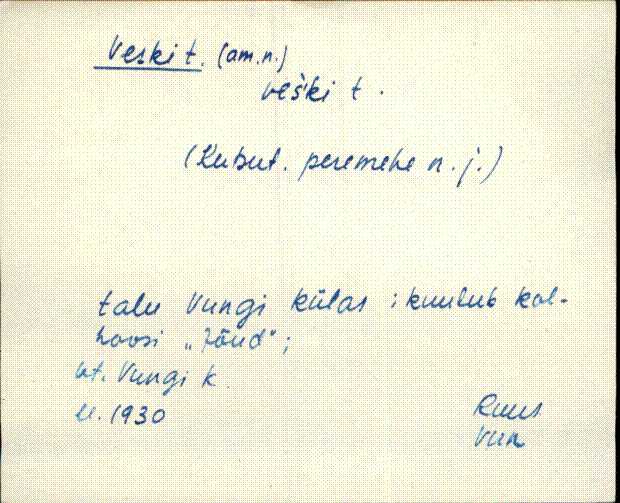 Veski t. (am.n.)
veški t.
(Kutsut. peremehe n. j.)
talu Vungi külas; kuulub kol-
hoosi „Jõud";
vt. Vungi k.
u. 1930
Ruus
Vun